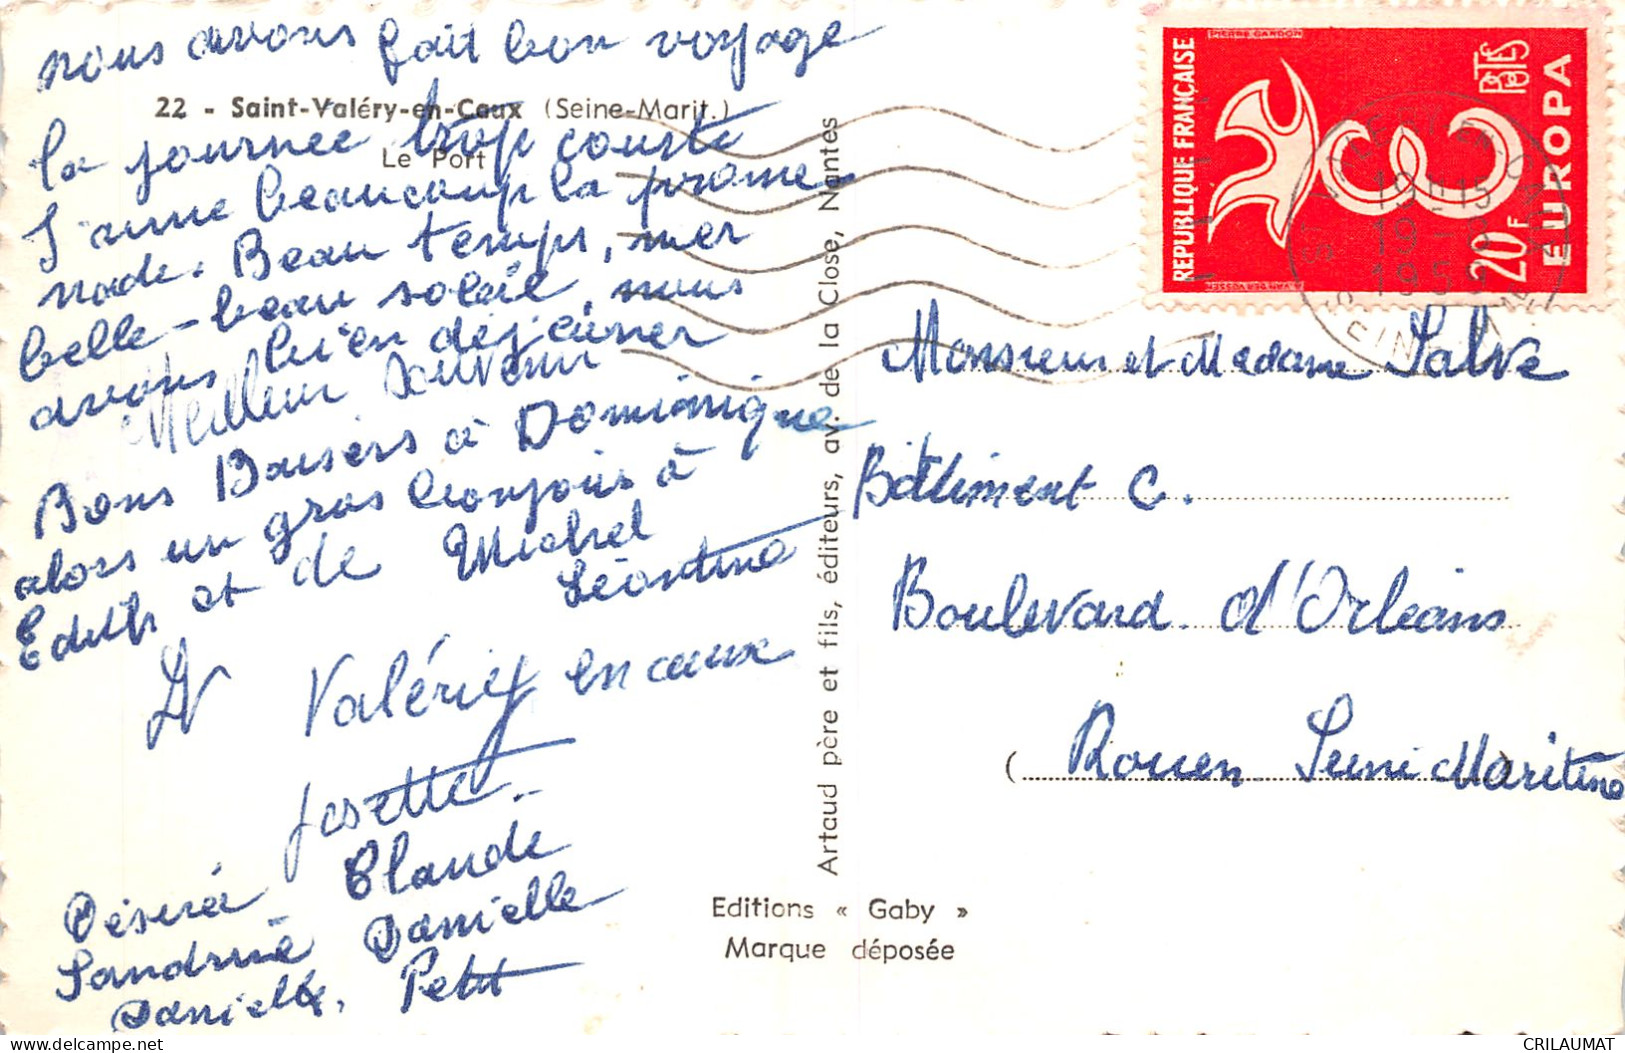 nous avons fait bon voyage
22 - Saint-Valéry-en-Caux (Seine-Marit.)
Le Port
la journee trop courte
J'aime beaucoup la prome
nade. Beau temps, mer
belle - beau soleil, nous
avons bien déjeuner
Meilleur Souvenir
Bons Baisers à Dominique
alors un gros bonjour à
Edith et de Michel
Léontine
St Valéry en caux
Josette
Claude
Désiré
Danielle
Sandrine
Petit
Danielle,
Artaud père et fils, éditeurs, av. de la Close, Nantes
Editions « Gaby »
Marque déposée
PIERRE GANDON
REPUBLIQUE FRANÇAISE
POSTES
20F
EUROPA
A. VAN DER VOSSEN
19H15
19 -
195
SEINE
Monsieur et Madame Salve
Bâtiment C.
Boulevard d'Orleans
( Rouen Seine Maritime
CRILAUMAT